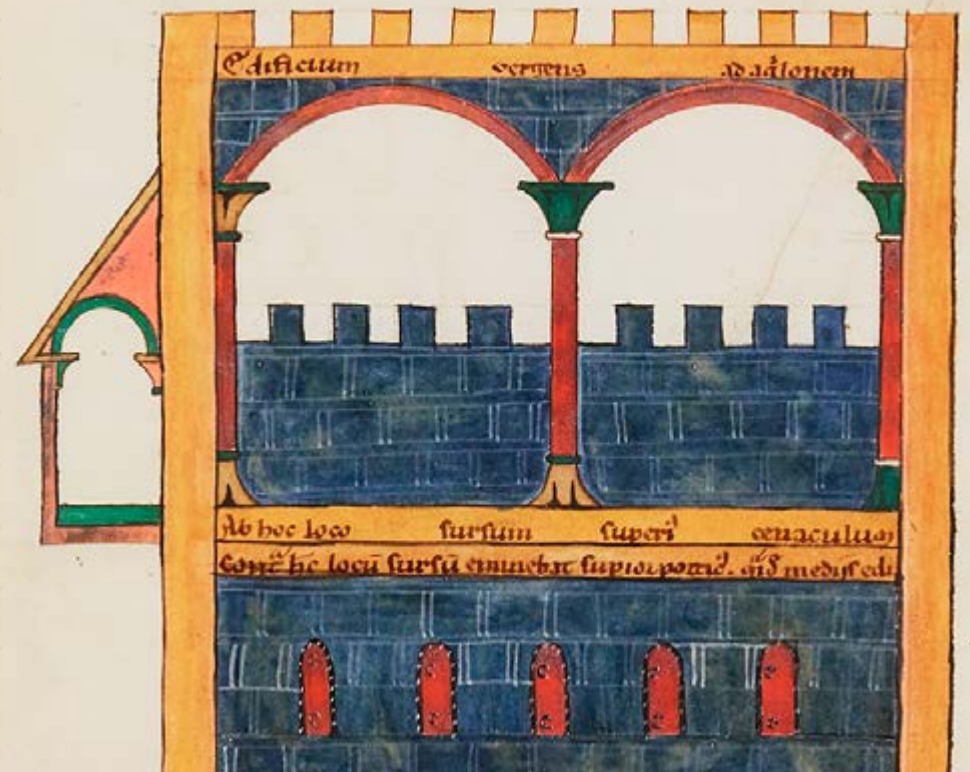 Edificium vergens ad aq̇lonem
Ab hoc loco sursum superi᷒ cenaculum
hc̄ locū sursū eminebat supior portic᷒. medij᷒ edi